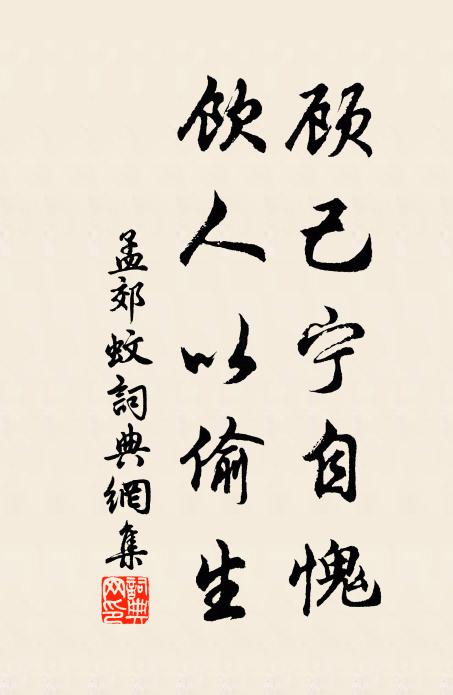 顾己宁自愧
饮人以偷生
孟郊蚊詞典網集
詞典網印